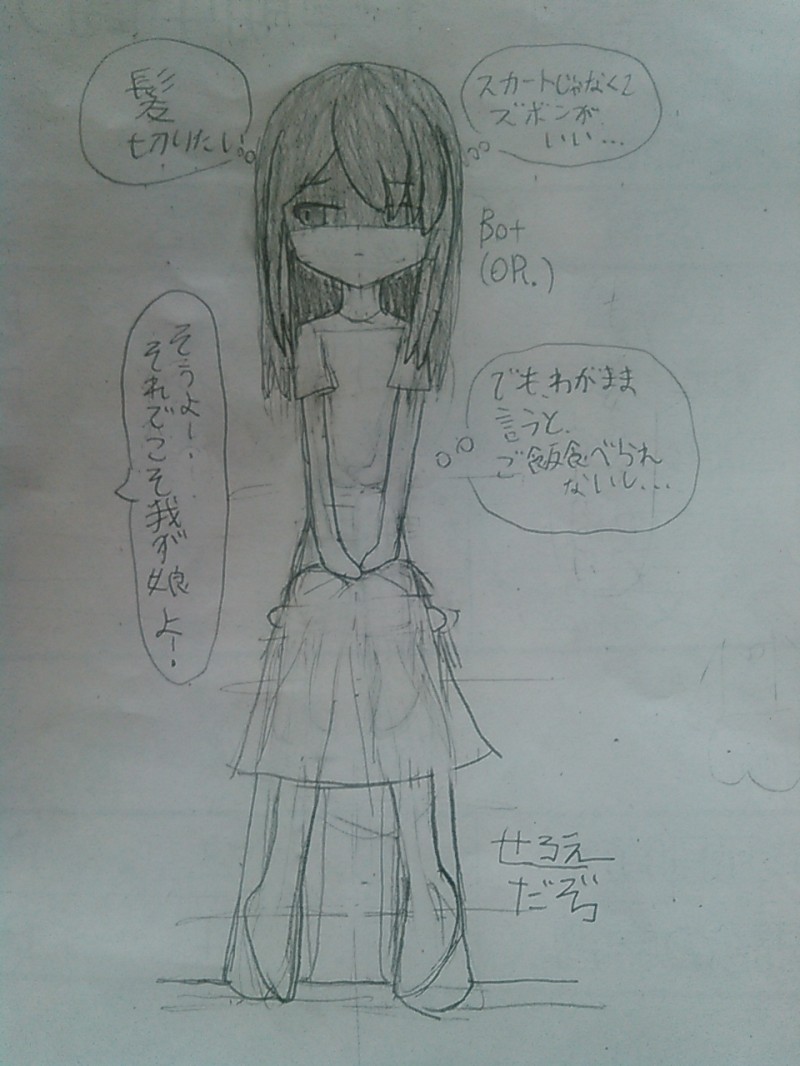 髪
切りたい
スカートじゃなくて
ズボンが
いい…
Bot
(OR.)
そうよー、
それでこそ我が娘よー
でも、わがまま
言うと、
ご飯食べられ
ないし…
せるえ
だぞっ